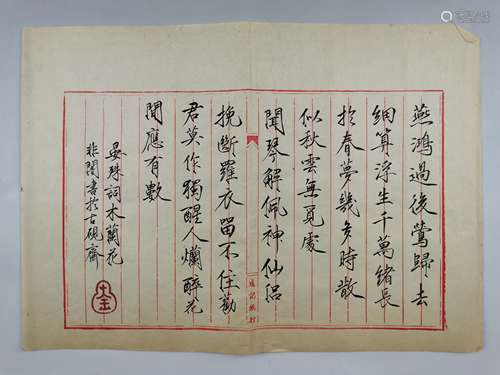 燕鴻過後鶯歸去
細算浮生千萬緒長
於春夢幾多時散
似秋雲無覓處
聞琴解佩神仙侶
挽斷羅衣留不住勸
君莫作獨醒人爛醉花
間應有數
晏殊詞木蘭花
非闇書於古硯齋